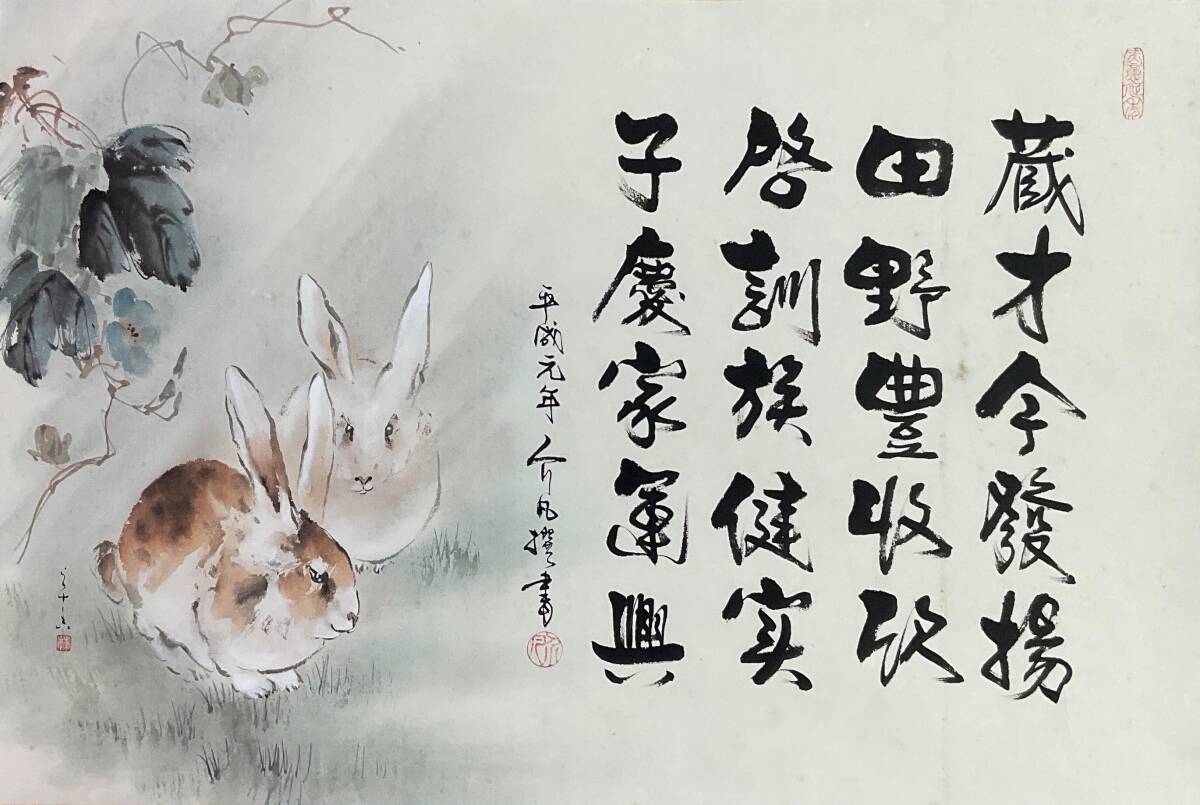 蔵才今發揚
田野豐收欣
啓訓族健実
子慶家運興
平成元年 介凡撰書